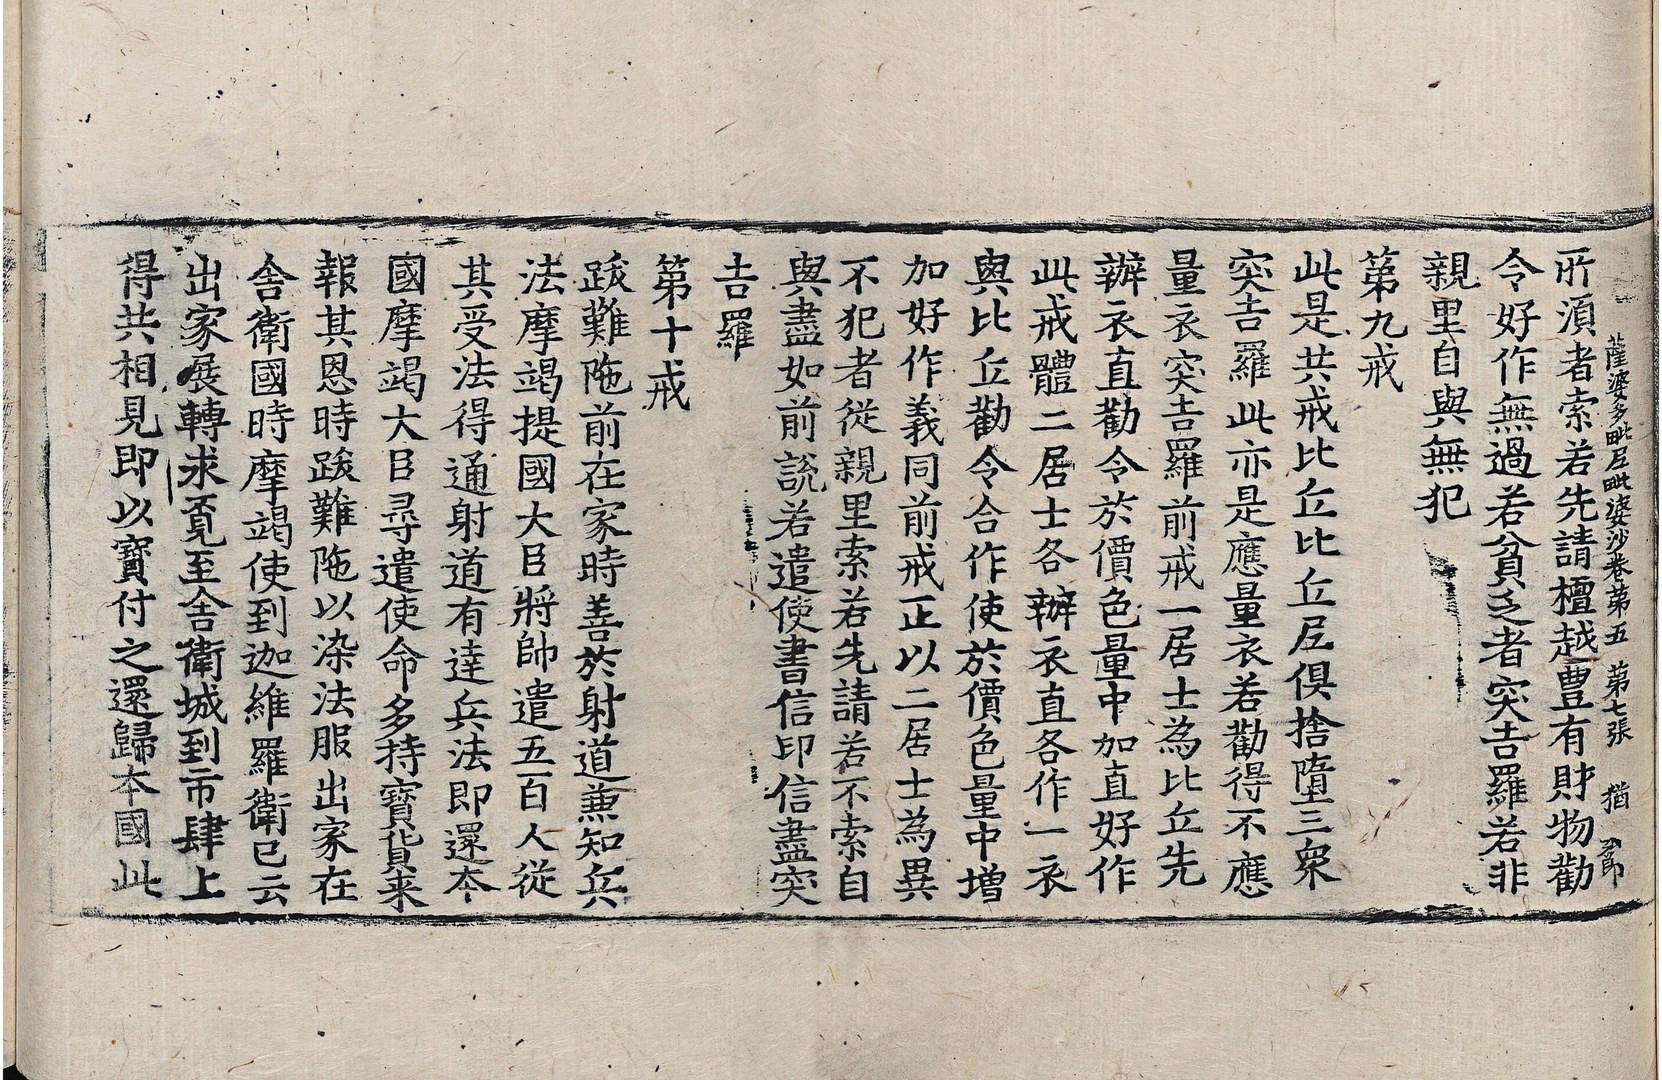 薩婆多毗尼毗婆沙卷第五　第七張　猶
所須者索若先請檀越豊有財物勸
令好作無過若貧乏者突吉羅若非
親里自與無犯
第九戒
此是共戒比丘比丘尼俱捨墮三衆
突吉羅此亦是應量衣若勸得不應
量衣突吉羅前戒一居士為比丘先
辦衣直勸令於價色量中加直好作
此戒體二居士各辦衣直各作一衣
與比丘勸令合作使於價色量中增
加好作義同前戒正以二居士為異
不犯者從親里索若先請若不索自
與盡如前說若遣使書信印信盡突
吉羅
第十戒
跋難陁前在家時善於射道兼知兵
法摩竭提國大臣將帥遣五百人從
其受法得通射道有達兵法即還本
國摩竭大臣尋遣使命多持寶貨来
報其恩時跋難陁以染法服出家在
舍衛國時摩竭使到迦維羅衛已云
出家展轉求覓至舍衛城到市肆上
得共相見即以寶付之還歸本國此